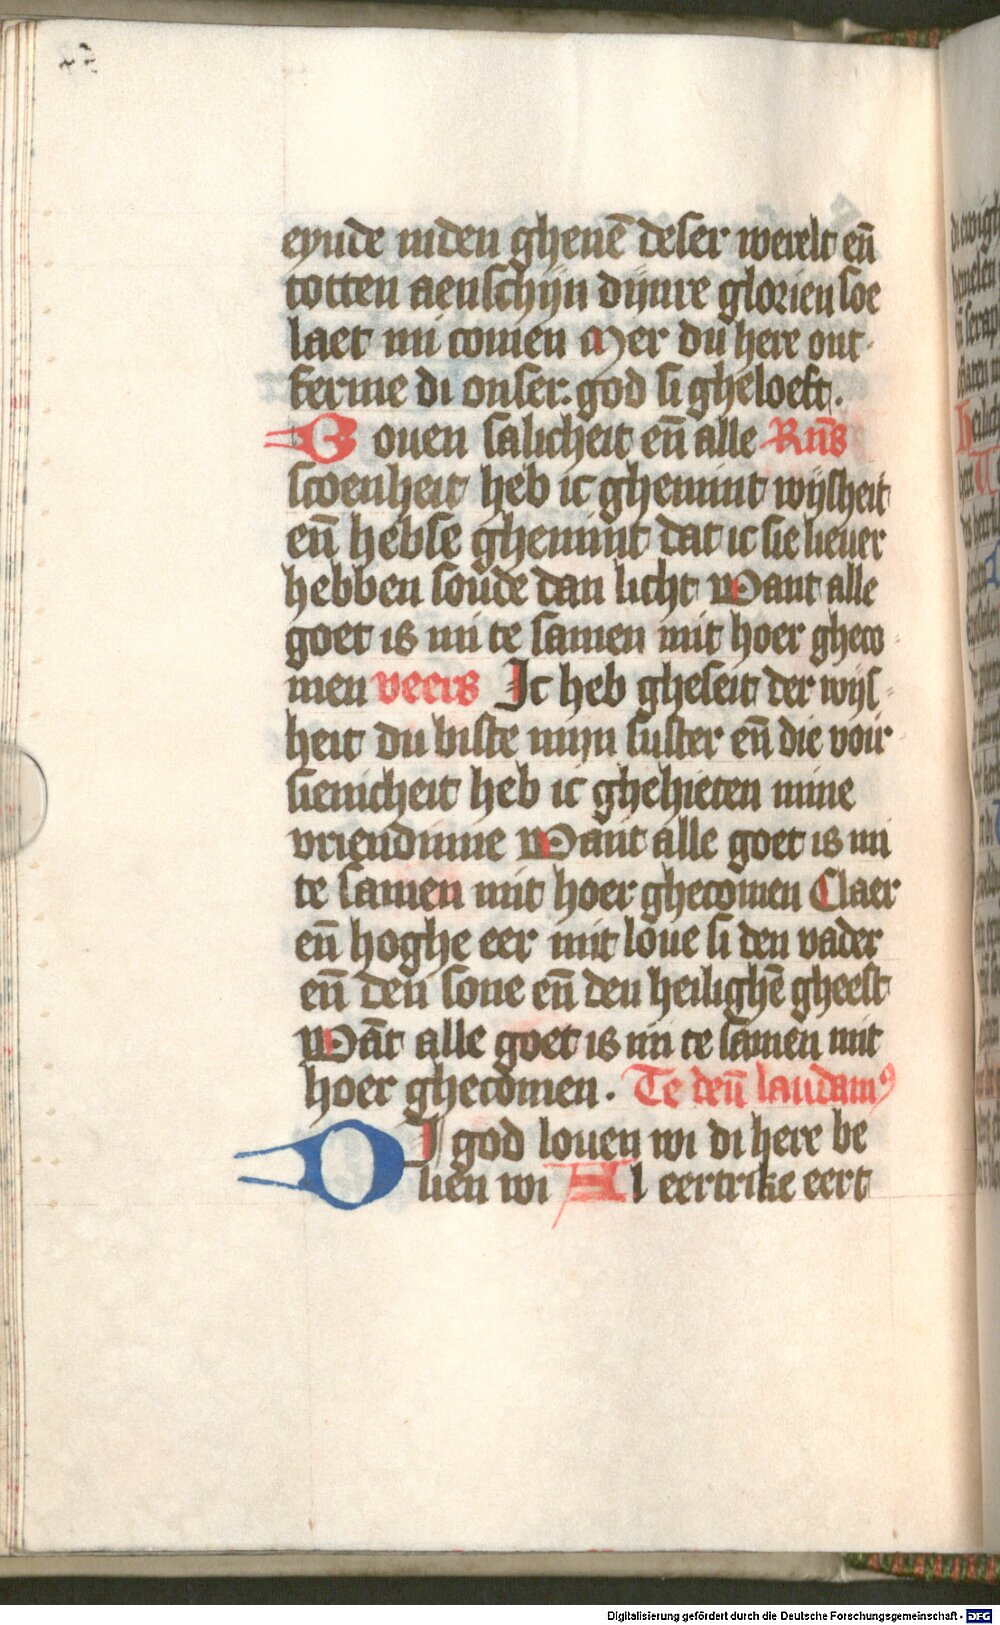 eynde inden ghenē deser werelt eñ
totten aenschijn dijnre glorien soe
laet mi comen Mer du here ont-
ferme di onser. god si gheloeft.
Bouen salicheit eñ alle Rñs
scoenheit heb ic ghemint wijsheit
eñ hebse ghemint dat ic sie lieuer
hebben soude dan licht Want alle
goet is mi te samen mit hoer gheco-
men veers Ic heb gheseit der wijs-
heit du biste mijn suster eñ die voir
sienicheit heb ic ghehieten mine
vriendinne Want alle goet is mi
te samen mit hoer ghecomen Claer
eñ hoghe eer mit loue si den vader
eñ den sone eñ den heilighē gheest
Wāt alle goet is mi te samen mit
hoer ghecomen. Te deū laudamꝰ
DI god louen wi di here be
lien wi Al eertrike eert
Digitalisierung gefördert durch die Deutsche Forschungsgemeinschaft - DFG